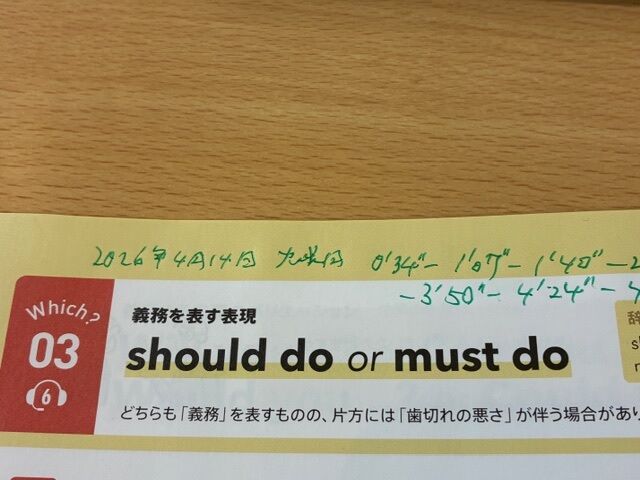 2026年4月14日 0'34"- 1'07"- 1'40"-2
-3'50"- 4'24"- 4
Which?
03
6
義務を表す表現
should do or must do
どちらも「義務」を表すものの、片方には「歯切れの悪さ」が伴う場合があり
辞
s
r